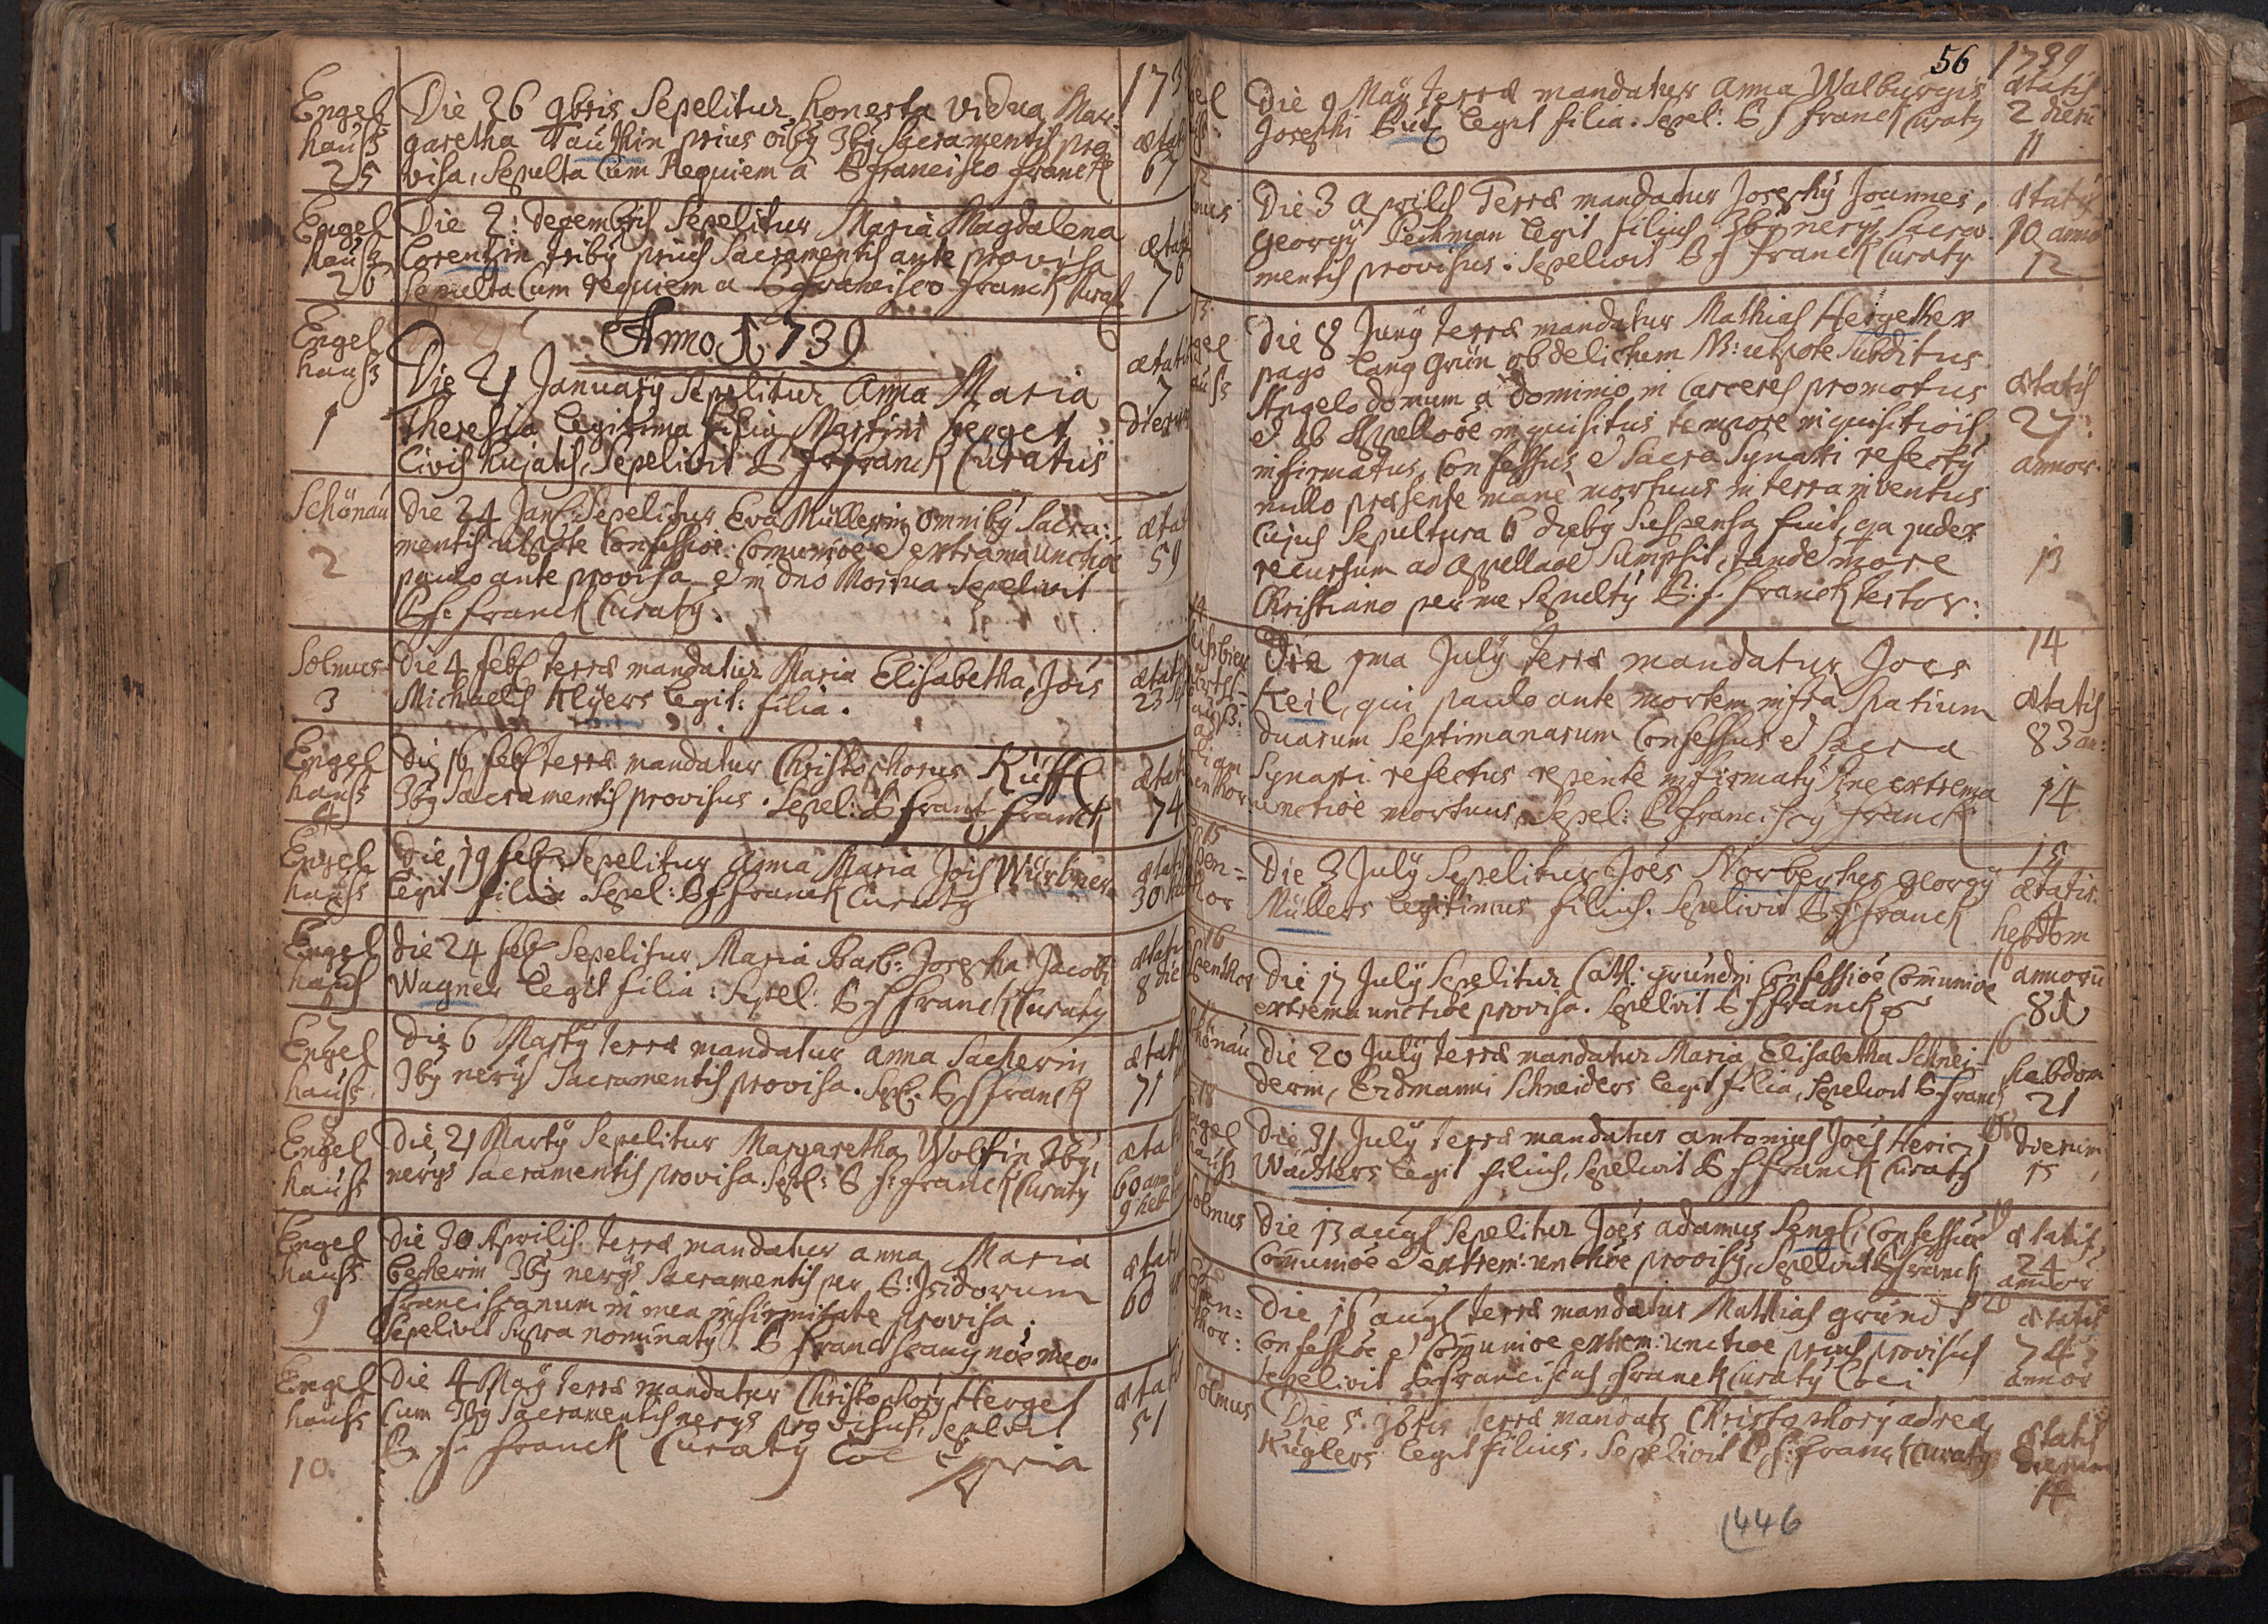 173
Engel
hauss
25
Die 26 9bris Sepelitur honesta vidua Mar-
garetha Tauthin prius oiby 3by Sacramentis pro
visa, Sepulta Cum Requiem à P francisco franck
ætat
67
Engel
hausz
26
Die 2: Decembris Sepelitur Maria Magdalena
Lorentzin tribÿ prius Sacramentis ante provisa
Sepulta Cum requiem a P francisco franck Curat
ætat
76
Anno 1739
Engel
hauss
1
Die 21 Januarÿ Sepelitur Anna Maria
Theresia legitima filia Martini Herget
Civis hujatis, Sepelivit P fr franck Curatus
ætatis
7
dierum
Schönau
2
Die 24 Jan: Sepelitur Eva Müllerin omnibÿ Sacra:
mentis utpote Confessioe Comunioe e extrema unctioe
paulo ante provisa e in dno Mortua Sepelivit
P f: franck Curatÿ.
ætat
59
Solmus
3
Die 4 feb terræ mandatur Maria Elisabetha, Jois
Michaelis Klÿers legit: filia.
ætat
23
Engel
hauss
4
Die 16 feb terræ mandatur Christophorus Küffl
3bÿ Sacramentis provisus. Sepel: P franc franck
ætat
74
Engel
hauss
5
Die 19 feb Sepelitur Anna Maria Jois Würbner
legit filia. Sepel: P f franck Curatÿ
ætat
30
Engel
hauss
6
Die 24 feb Sepelitur Maria Barb: Josepha Jacobi
Wagner legit filia: Sepel: P f franck Curatÿ
ætat
8 die
7
Engel
hauss
Die 6 Martÿ terræ mandatur anna Sacherin
3bÿ nerÿs Sacramentis provisa. Sepel: P f franck
ætat
71
8
Engel
hauss
Die 21 Martÿ Sepelitur Margaretha Wolfin 3bÿ
nerÿs Sacramentis provisa. Sepel: P f: franck Curatÿ
ætat
60 ann
9 heb
Engel
hauss
9
Die 30 Aprilis terræ mandatur anna Maria
Becherin 3bÿ nerÿs Sacramentis per P: Isidorum
franciscanum in mea infirmitate provisa.
Sepelivit Supra nominatÿ P franciscanÿ nōe meo.
ætat
60
Engel
hauss
10
Die 4 Maÿ terræ mandatur Christophorÿ Herget
Cum 3bÿ Sacramentis nerÿs provisus, Sepelivit
P f. franck Curatÿ
ætat
51
56
1739
Die 9 Maÿ terræ mandatur Anna Walburgis
Josephi legit filia. Sepel: P f franck Curatÿ
ætatis
2 dieru
11
Die 3 Aprilis Terræ mandatur Josephÿ Joannes,
Georgÿ Pechman legit filius 3bÿ nerÿs Sacra-
mentis provisus. Sepelivit P f franck Curatÿ
ætatis
10 anno
12
Die 8 Junÿ terræ mandatur Mathias Hergether
pago Lang Grün ob delictum NB: utpote Subditus
Angelo domum a dominio in Carceres promotus
e ab Apellaoe inquisitus tempore inquisitiois
infirmatus, Confessus e Sacra Synaxi refectÿ
nullo præsente mane mortuus in terra inventus
Cujus Sepultura 6 diebÿ Suspensa fuit, qa judex
recursum ad Apellaoe Sumpsit, tande more
Christiano per me Sepultÿ P: f: franck testor:
ætatis
27
annor.
13
Die 1ma Julÿ terræ mandatur Joes
Keil, qui paulo ante mortem infra Spatium
duarum Septimanarum Confessus e Sacra
Synaxi refectus repente infirmatÿ Sine extrema
unctioe mortuus. Sepel: P franciscÿ franck
14
ætatis
83 an:
14
Die 3 Julÿ Sepelitur Joes Norbertus Georgÿ
Müllers legitimus filius. Sepelivit P f franck
15
ætatis
hebdom
Die 17 Julÿ Sepelitur Cath: gründin Confessioe Comunioe
extrema unctioe provisa. Sepelivit P f franck
annorū
81
16
Schönau
Die 20 Julÿ terræ mandatur Maria Elisabetha Schnei-
derin, Erdmanni Schneiders legit filia, Sepelivit P franck
hebdom
21
18
Die 31 Julÿ terræ mandatur antonius Joes Heric
Wächters legit filius, Sepelivit P f franck Curatÿ
dierum
15
Solmus
Die 13 aug Sepelitur Joes adamus Sengl, Confessioe
Comunioe e extrem: unctioe provisÿ, Sepelivit P f franck
19
ætatis
24
annor
Die 15 aug terræ mandatur Mathias gründl
Confessioe e Comunioe extrem: unctioe prius provisus
Sepelivit P franciscus franck Curatÿ loci
20
ætatis
74
annor
Solmus
Die 5. 9bris terræ mandatÿ Christophorÿ adrea
Kuglers legit filius. Sepelivit P f: franck Curatÿ
ætatis
dierum
14
446